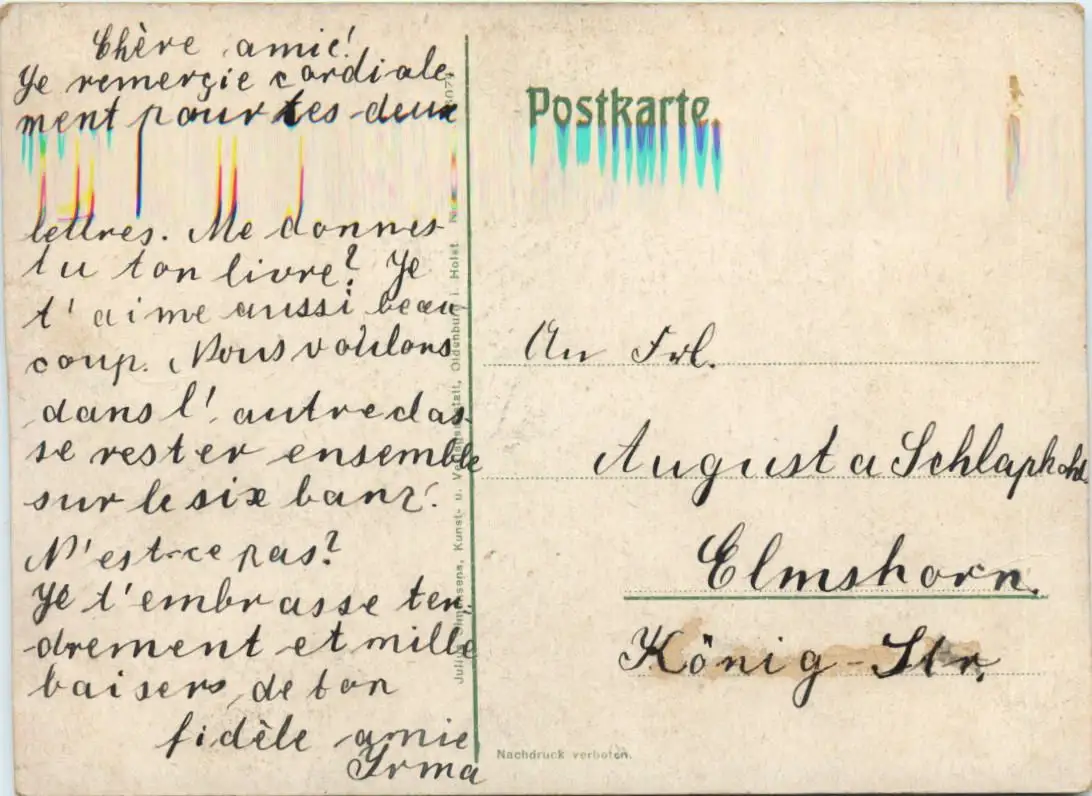 Chère amie!
Je remerçie cordiale
ment pour tes deux
lettres. Me donnes
tu ton livre? Je
t'aime aussi beau
coup. Nous voulons
dans l'autre clas
se rester ensemble
sur le six banz.
N'est-ce pas?
Je t'embrasse ten
drement et mille
baisers de ton
fidèle amie
Irma
Postkarte.
An Frl.
Augusta Schlapkohl
Elmshorn.
König-Str.
Kunst- u. Oldenburg i. Holst
Nachdruck verboten.